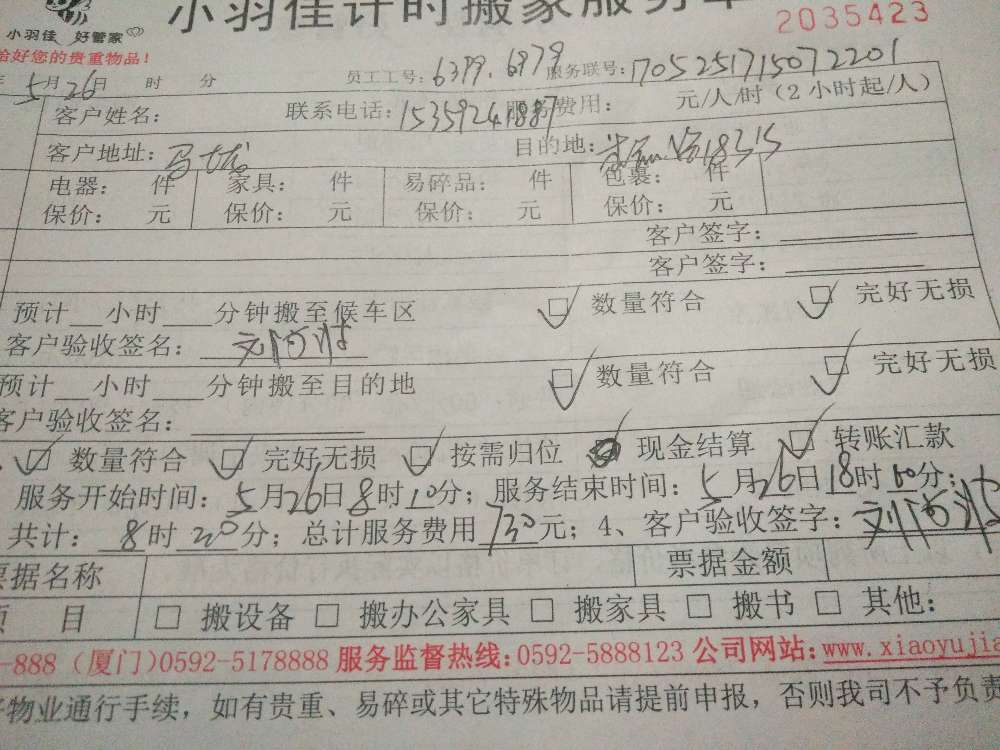 小羽佳计时搬家服务单
小羽佳 好管家
2035423
给好您的贵重物品!
年5月26日 时 分 员工工号:6399.6979 服务联号:170525171507220 1
客户姓名: 联系电话:15359241887 服务费用: 元/人/时(2小时起/人)
客户地址: 目的地:
电器: 件 家具: 件 易碎品: 件 包裹: 件
保价: 元 保价: 元 保价: 元 保价: 元
客户签字:
客户签字:
预计__小时___分钟搬至候车区 数量符合 完好无损
客户验收签名:
预计__小时___分钟搬至目的地 数量符合 完好无损
客户验收签名:
数量符合 完好无损 按需归位 现金结算 转账汇款
服务开始时间:5月26日8时10分;服务结束时间:5月26日18时00分;
共计:8时20分;总计服务费用730元;4、客户验收签字:
票据名称 票据金额
项 目 □ 搬设备 □ 搬办公家具 □ 搬家具 □ 搬书 □ 其他:
-888(厦门)0592-5178888 服务监督热线:0592-5888123 公司网站:www.xiaoyujia
物业通行手续,如有贵重、易碎或其它特殊物品请提前申报,否则我司不予负责